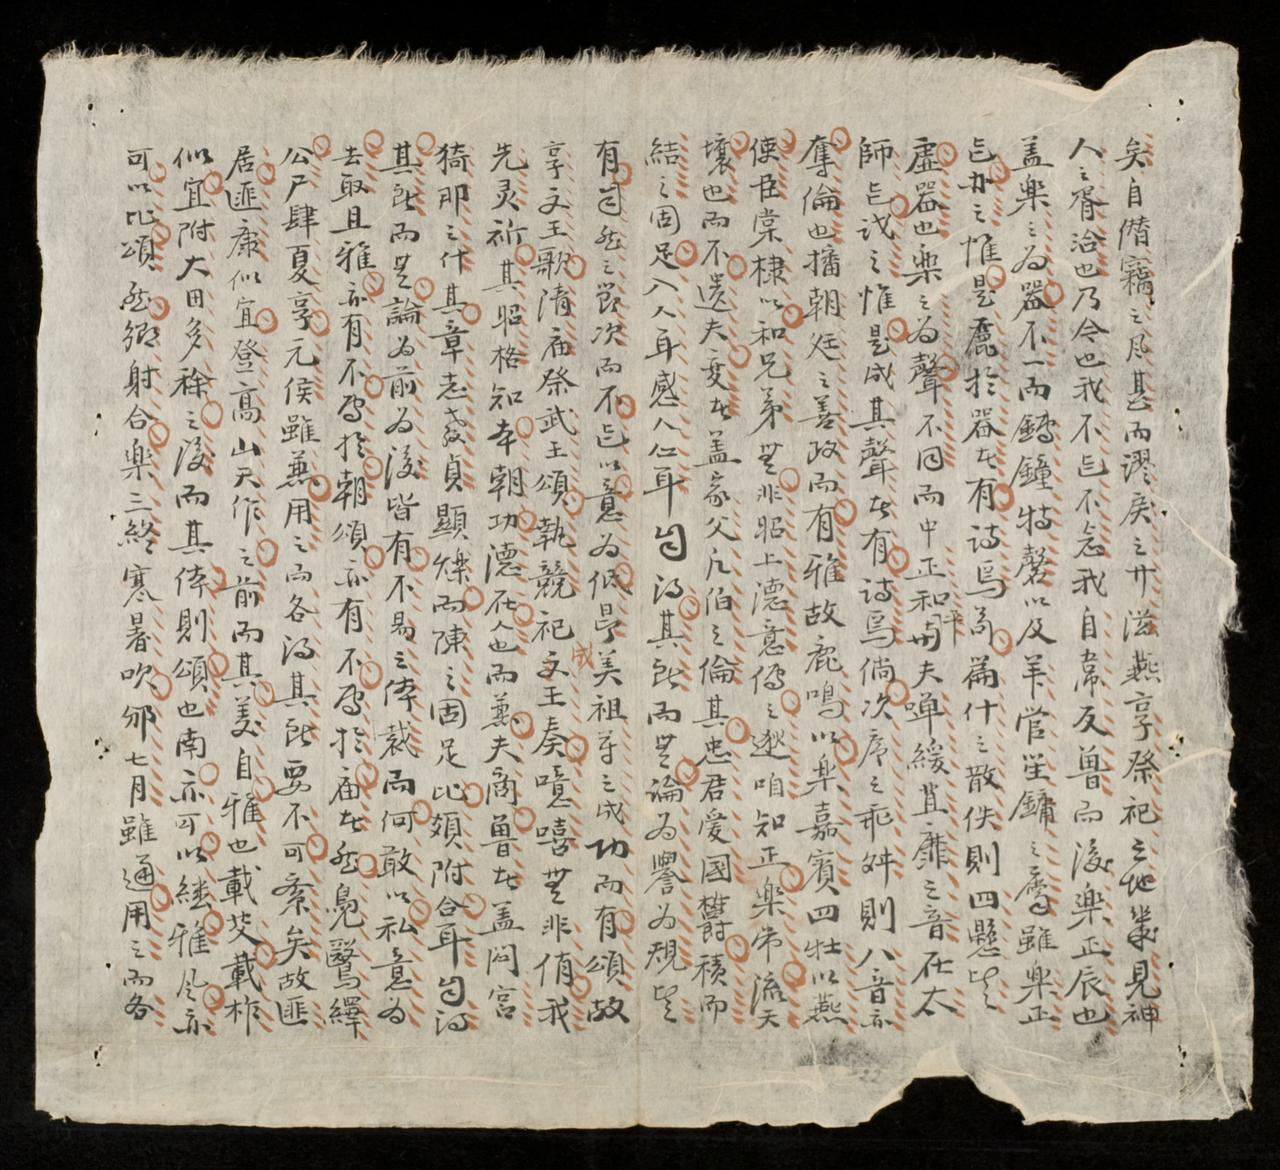 矣自僭竊之風甚而謬戾之卄滋燕享祭祀之地幾見神
人之胥洽也乃今也我不㠯不忘我自常反魯而後樂正辰也
盖樂之為器不一而鏄鐘特磬以及羊管笙鏞之屬雖樂正
㠯力之惟是麗扵器者有詩焉苟篇什之散佚則四懸皆
虛器也樂之為聲不同而中正和平夫嘽緩且靡之音在太
師㠯戒之惟是成其聲者有詩焉倘次序之乖舛則八音亦
奪倫也播朝廷之善政而有雅故鹿鳴以樂嘉賓四牡以燕
使臣棠棣以和兄弟無非昭上德意傳之逖咱知正樂常流天
壤也而不遺夫変者盖家父凡伯之倫其忠君愛國欝積而
結之固足入人耳感人仁耳自得其所而無論為譽為規皆
有自然之節次而不㠯以意為低昻美祖考之成功而有頌故
享文王歌清庙祭武王頌執競祀成王奏噫嘻無非侑我
先灵祈其昭格知本朝功德在人也而兼夫商魯者盖閟宮
猗那之什其章志發貞顯爍而陳之固足比頻附合耳自得
其所而無論為前為後皆有不易之体裁而何敢以私意為
去取且雅亦有不層扵朝頌亦有不層扵庙者然鳧鷖繹
公尸肆夏享元侯雖兼用之而各得其所要不可紊矣故匪
居匪康似宜登高山天作之前而其美自雅也載芟載柞
似宜附大田多稼之後而其体則頌也南亦可以継雅風亦
可以比頌然鄉射合樂三終寒暑吹邠七月雖通用之而各